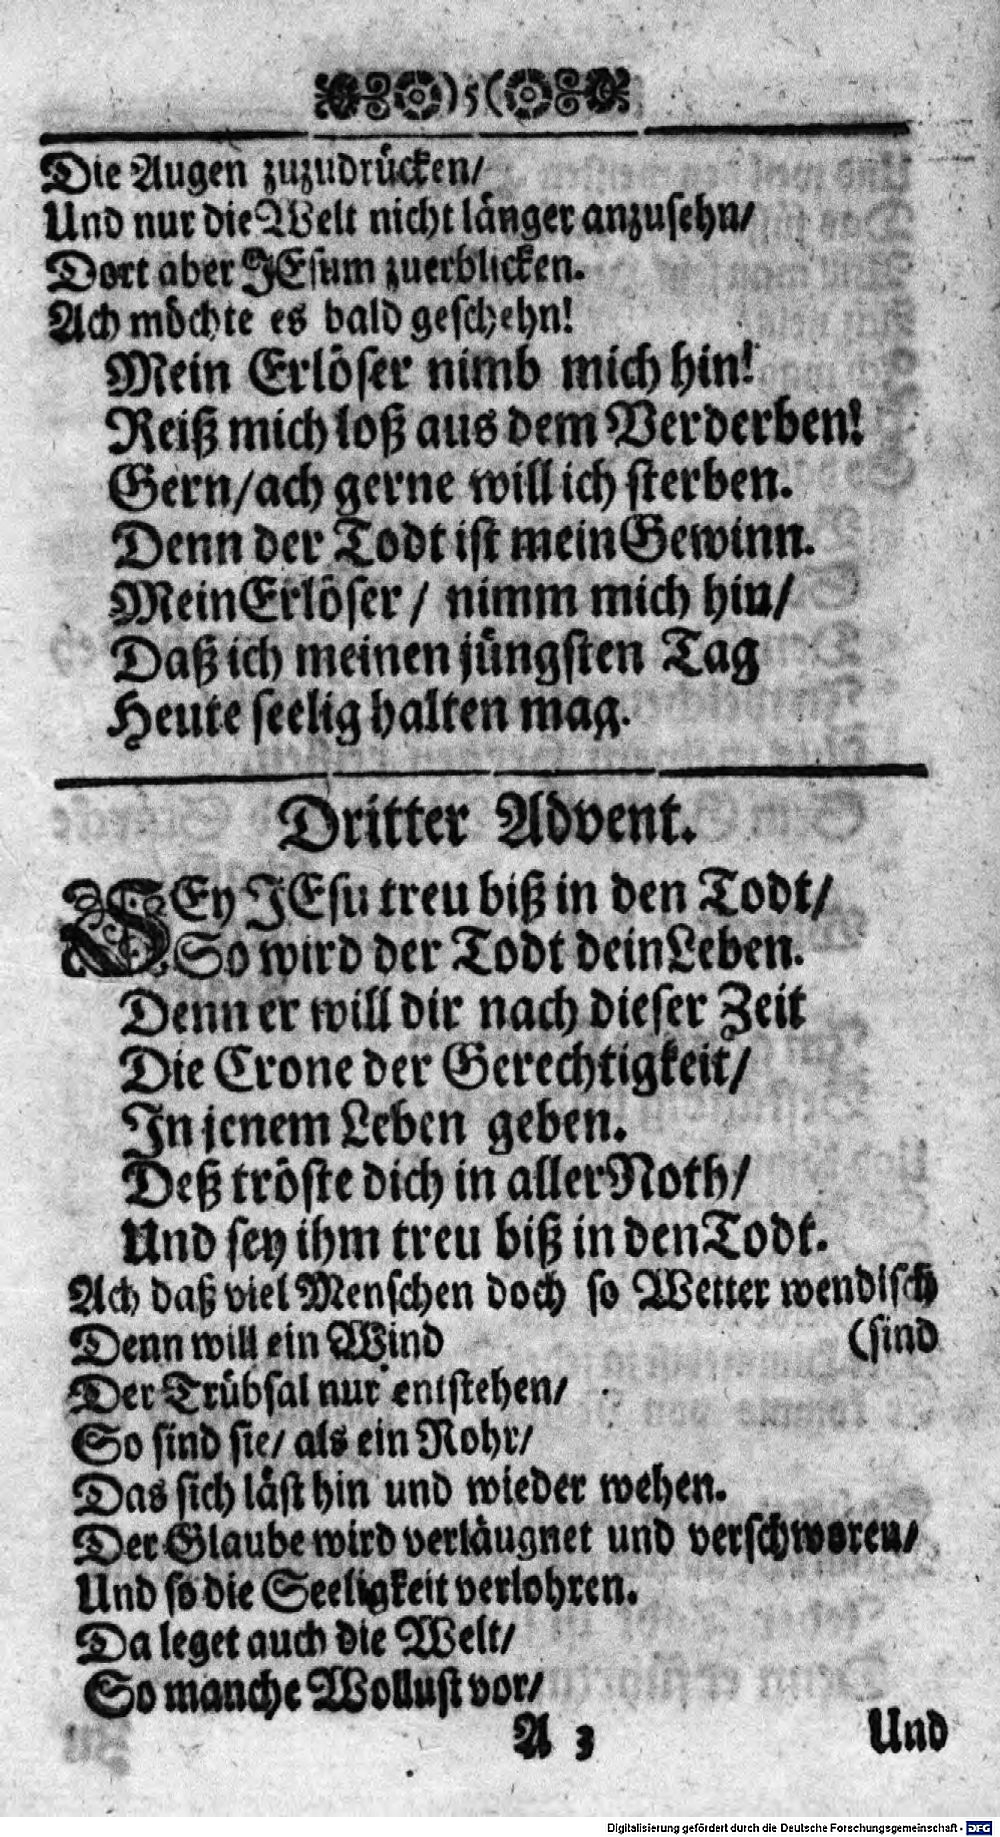 )5(
Die Augen zuzudrücken/
Und nur die Welt nicht länger anzusehn/
Dort aber JEsum zuerblicken.
Ach möchte es bald geschehn!
Mein Erlöser nimb mich hin!
Reiß mich loß aus dem Verderben!
Gern/ach gerne will ich sterben.
Denn der Todt ist mein Gewinn.
Mein Erlöser / nimm mich hin/
Daß ich meinen jüngsten Tag
Heute seelig halten mag.
Dritter Advent.
SEy JEsu treu biß in den Todt/
So wird der Todt dein Leben.
Denn er will dir nach dieser Zeit
Die Crone der Gerechtigkeit/
In jenem Leben geben.
Deß tröste dich in aller Noth/
Und sey ihm treu biß in den Todt.
Ach daß viel Menschen doch so Wetter wendisch
Denn will ein Wind (sind
Der Trübsal nur entstehen/
So sind sie/ als ein Rohr/
Das sich läst hin und wieder wehen.
Der Glaube wird verläugnet und verschworen/
Und so die Seeligkeit verlohren.
Da leget auch die Welt/
So manche Wollust vor/
A 3 Und
Digitalisierung gefördert durch die Deutsche Forschungsgemeinschaft - DFG